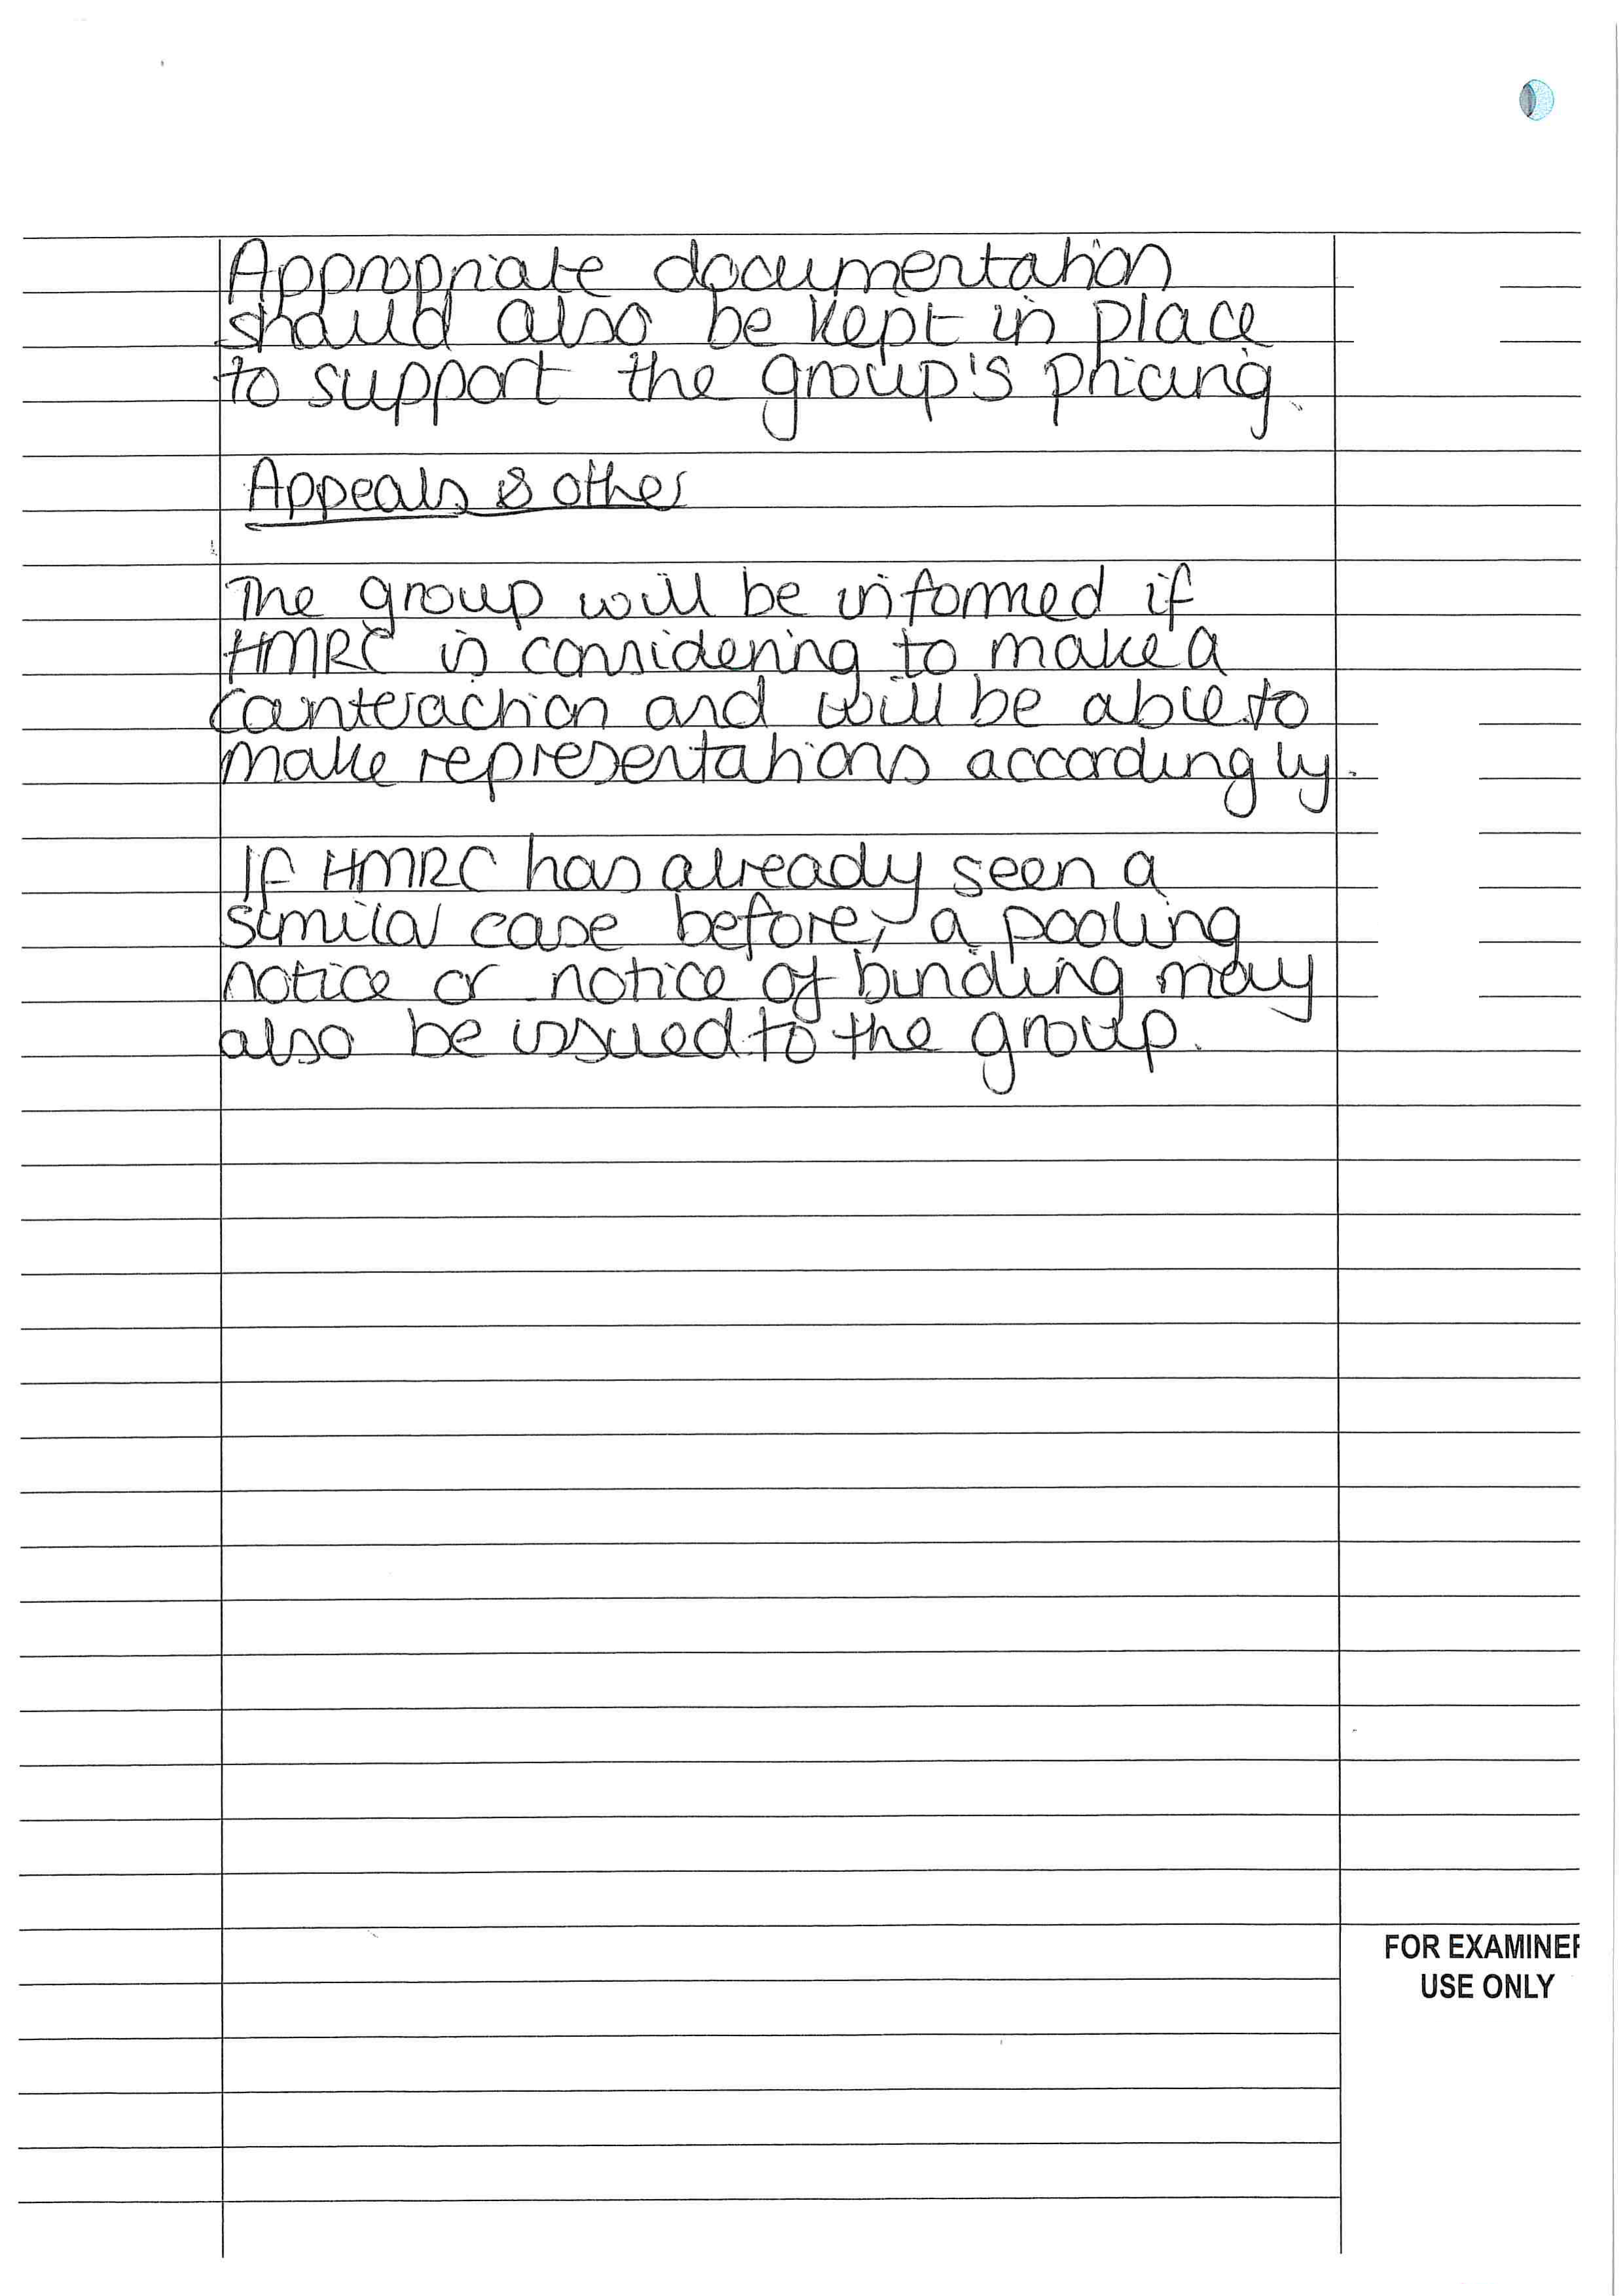 Appropriate documentation
should also be kept in place
to support the group's pricing.
Appeals & other
The group will be informed if
HMRC is considering to make a
counteraction and will be able to
make representations accordingly.
If HMRC has already seen a
similar case before, a pooling
notice or notice of binding may
also be issued to the group.
FOR EXAMINER
USE ONLY